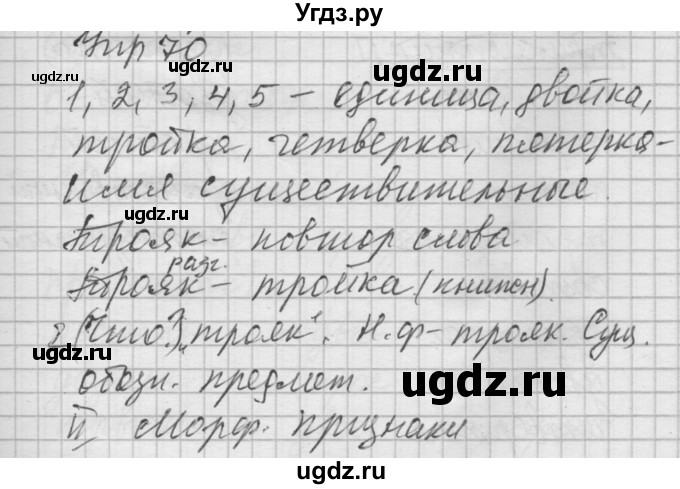 Угдз.ру
Упр 70
1, 2, 3, 4, 5 – единица, двойка,
тройка, четверка, пятерка –
имя существительные.
Трояк – повтор слова
разг.
Трояк – тройка (книжн).
(Что?) „трояк“. Н.ф – трояк. Сущ.
обозн. предмет.
II Морф. признаки
ugdz.ru
ugdz.ru
ugdz.ru
ugdz.ru
ugdz.ru
ugdz.ru
ugdz.ru
ugdz.ru
ugdz.ru
ugdz.ru
ugdz.ru
ugdz.ru